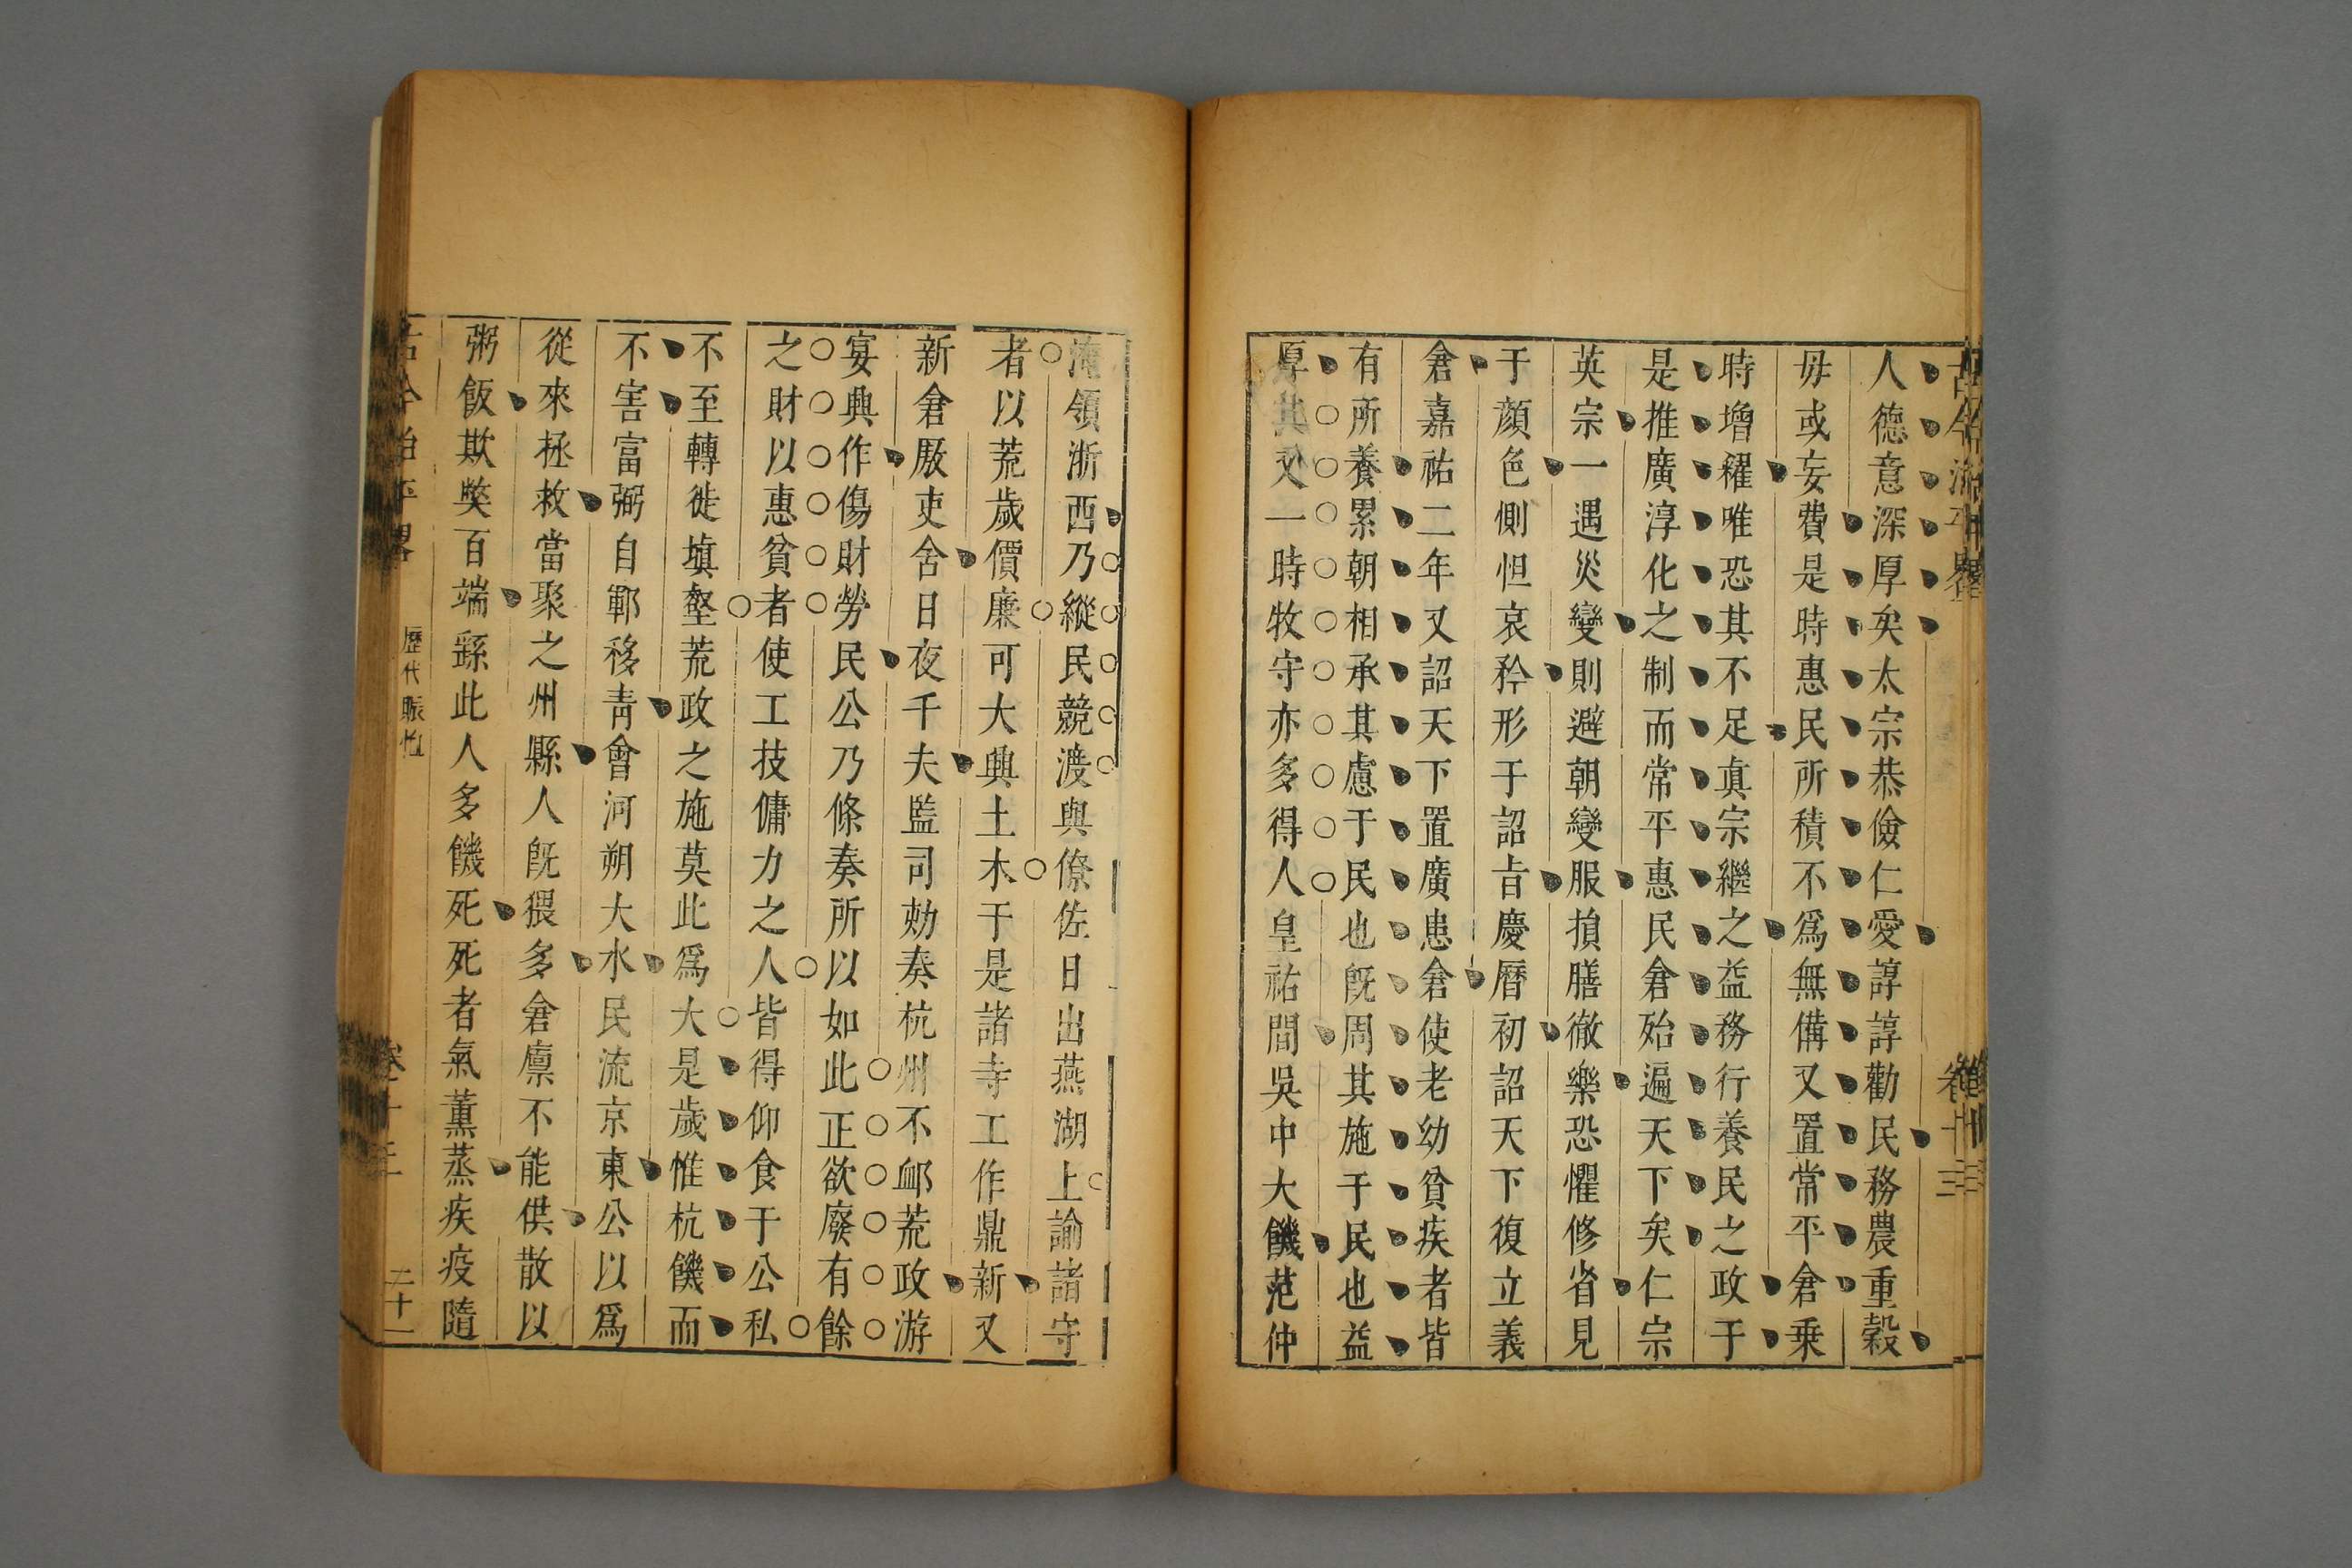 人德意深厚矣太宗恭儉仁愛諄諄勸民務農重穀
毋或妄費是時惠民所積不爲無備又置常平倉乗
時增糴唯恐其不足眞宗繼之益務行養民之政于
是推廣淳化之制而常平惠民倉殆遍天下矣仁宗
英宗一遇災變則避朝變服損膳徹樂恐懼修省見
于顏色惻怛哀矜形于詔旨慶曆初詔天下復立義
倉嘉祐二年又詔天下置廣惠倉使老幼貧疾者皆
有所養累朝相承其慮于民也旣周其施于民也益
厚其又一時牧守亦多得人皇祐間吳中大饑范仲
淹領浙西乃縱民競渡與僚佐日出燕湖上諭諸守
者以荒歲價廉可大興土木于是諸寺工作鼎新又
新倉厫吏舍日夜千夫監司劾奏杭州不衈荒政游
宴興作傷財勞民公乃條奏所以如此正欲廢有餘
之財以惠貧者使工技傭力之人皆得仰食于公私
不至轉徙塡壑荒政之施莫此爲大是歲惟杭饑而
不害富弼自鄆移靑會河朔大水民流京東公以爲
從來拯救當聚之州縣人旣猥多倉廪不能供散以
粥飯欺獘百端繇此人多饑死死者氣薰蒸疾疫隨
歷代賑恤
二十一